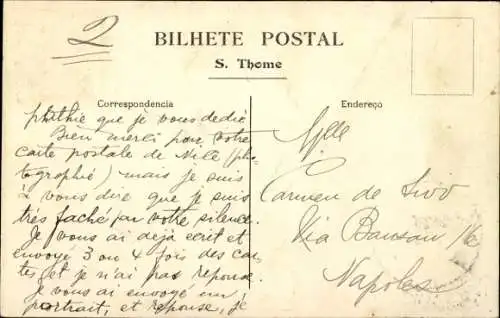 2
BILHETE POSTAL
S. Thome
Correspondencia
Endereço
que je vous dedié
Bien merci pour votre
carte postale de Nile (pho
tographié) mais je suis
à vous dire que je suis
très faché par votre silence.
Je vous ai déjà ecrit et
envoyé 3 ou 4 fois des car
tes et je n'ai pas reponse.
je vous ai envoyé un
portrait, et reponse, je
Mlle
Carmen de
Via
Napoles